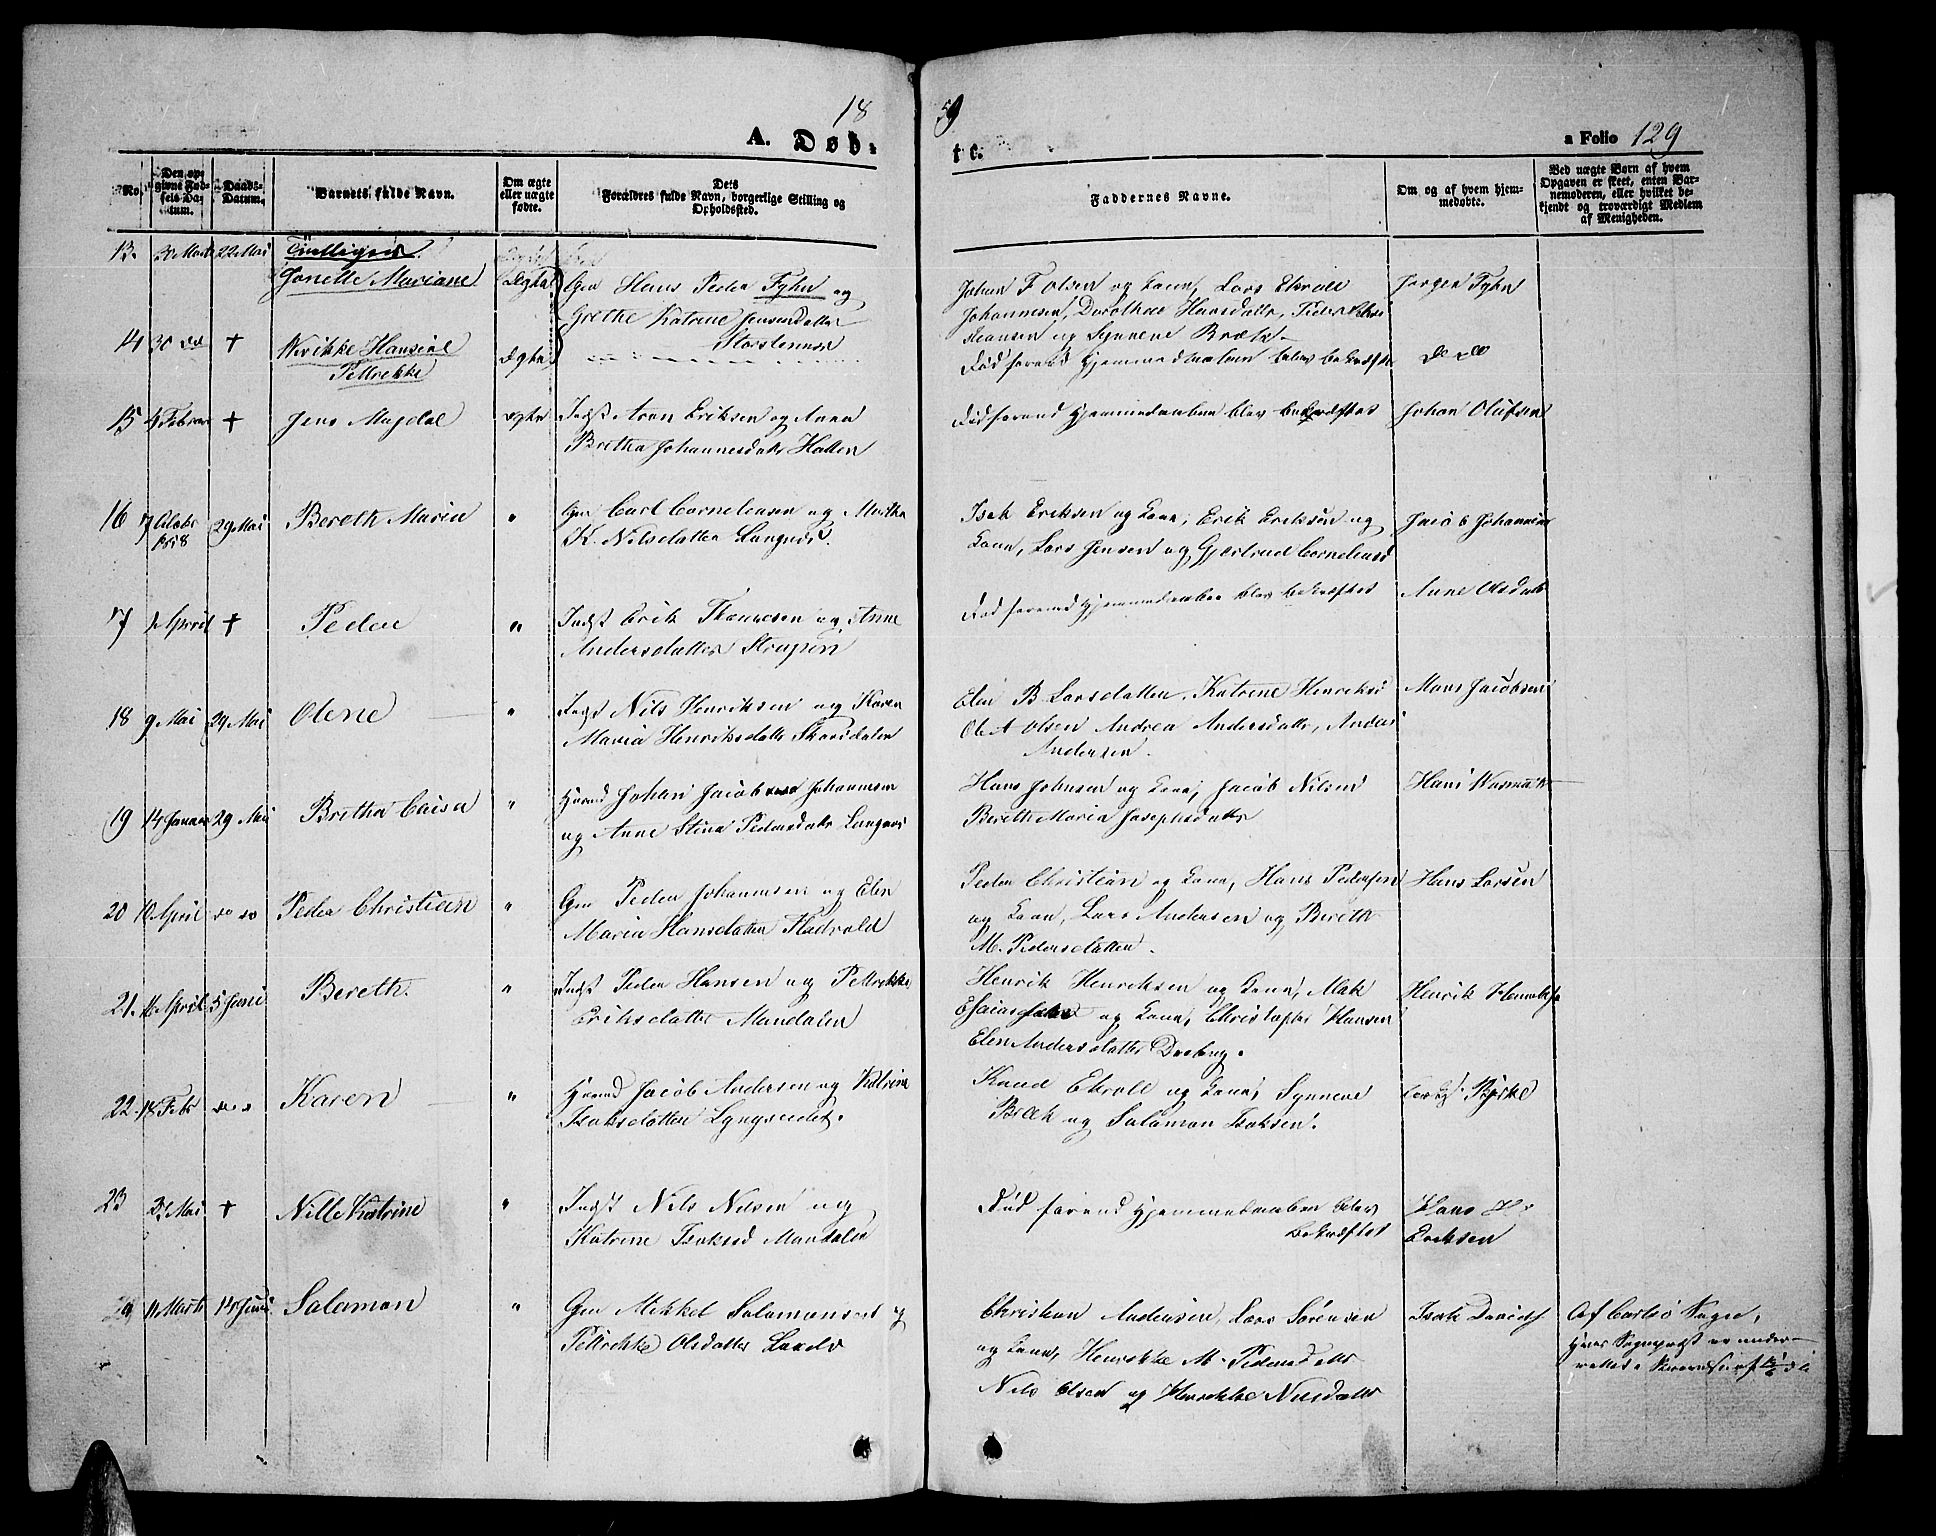 18 59
A. Døb- te.
a Folio 129
No.
Den opgivne Fødsels Datum.
Daabs-Datum.
Barnets fulde Navn.
Om ægte eller uægte fødte.
Dets Forældres fulde Navn, borgerlige Stilling og Opholdssted.
Faddernes Navne.
Om og af hvem hjemmedøbte.
Ved uægte Børn af hvem Opgaven er skeet, enten Barnemoderen, eller hvilket bekjendt og troværdigt Medlem af Menigheden.
13. 22 Mai Tvillinger
Jonette Mariane Ægte Gm Hans Peder Fyhn og
Grethe Katrine Jensdatter
Storstennes
Johan F Olsen og Kone, Lars Ekrold
Johannesen, Dorothea Hansdatter, Peder
og Synneve Bræk
Jørgen Fyhn
14 30 do + Hansine
Petrekke Ægte
Død forend Hjemmedaaben blev bekræftet do do
15 4 Februar + Jens Magdal ægte Indst Aron Eriksen og Anna
Bretha Johannesdatter Holten
Død forend Hjemmedaaben blev bekræftet Johan Olufsen
16 7 Octobr 1858 29 Mai Bereth Maria " Gm Carl Corneliusen og Martha
K. Nilsdatter Langnes
Isak Eriksen og Kone, Erik Eriksen og
Kone, Lars Jensen og Gjertrud Corneliusd
Jacob Johannesen
17 April + Peder " Indst Erik Thomesen og Anne
Andersdatter Strupen
Død forend Hjemmedaaben blev bekræftet Anne Olsdatter
18 9 Mai 29 Mai Olene " Indst Nils Henriksen og Karen
Maria Henriksdatter Skovdalen
Elen B Larsdatter, Katrine Henriks
Ole A Olsen Andrea Andersdatter, Anders
Andersen.
Mons Jacobsen
19 14 Januar 29 Mai Britha Caisa " Gaard Johan Jacob Johannesen
og Anne Stina Pedersdatter Langnes
Hans Johnsen og Kone, Jacob Nilsen
Bereth Maria Josephsdatter
Hans
20 10 April do do Peder Christian " Gm Peder Johannesen og Elen
Maria Hansdatter Fladvold
Peder Christian og Kone, Hans Pedersen
og Kone, Lars Andersen og Bereth
M. Pedersdatter.
Hans Larsen
21. 16 April 5 Juni Bereth. " Indst Peder Hansen og Petrekke
Eriksdatter Mandalen
Henrik Henriksen og Kone, Mak
og Kone, Christopher Hansen
Elen Andersdatter
Henrik Henriksen
22 18 Febr do Karen " Gaard Jacob Andersen og Katrine
Isaksdatter Lyngseidet.
Knud Ekroll og Kone, Synneve
Bræk og Salamon Isaksen.
Bjerke
23 Mai + Nille Katrine " Indst Nils Nilsen og
Katrine Isaksd Mandalen
Død forend Hjemmedaaben blev
bekræftet
Hans H.
Eriksen
11 Marts 14 Juni Salamon " Gm Mikkel Salamonsen og
Petrekke Olsdatter
Christian Andersen, Lars Sørensen
og Kone, Henrikke M. Pedersdatter
Nils Olsen og Henrikke Nilsdatter
Isak Davids
Af Carlsø Sogn,
hvis Sognepræst er under-
rettet